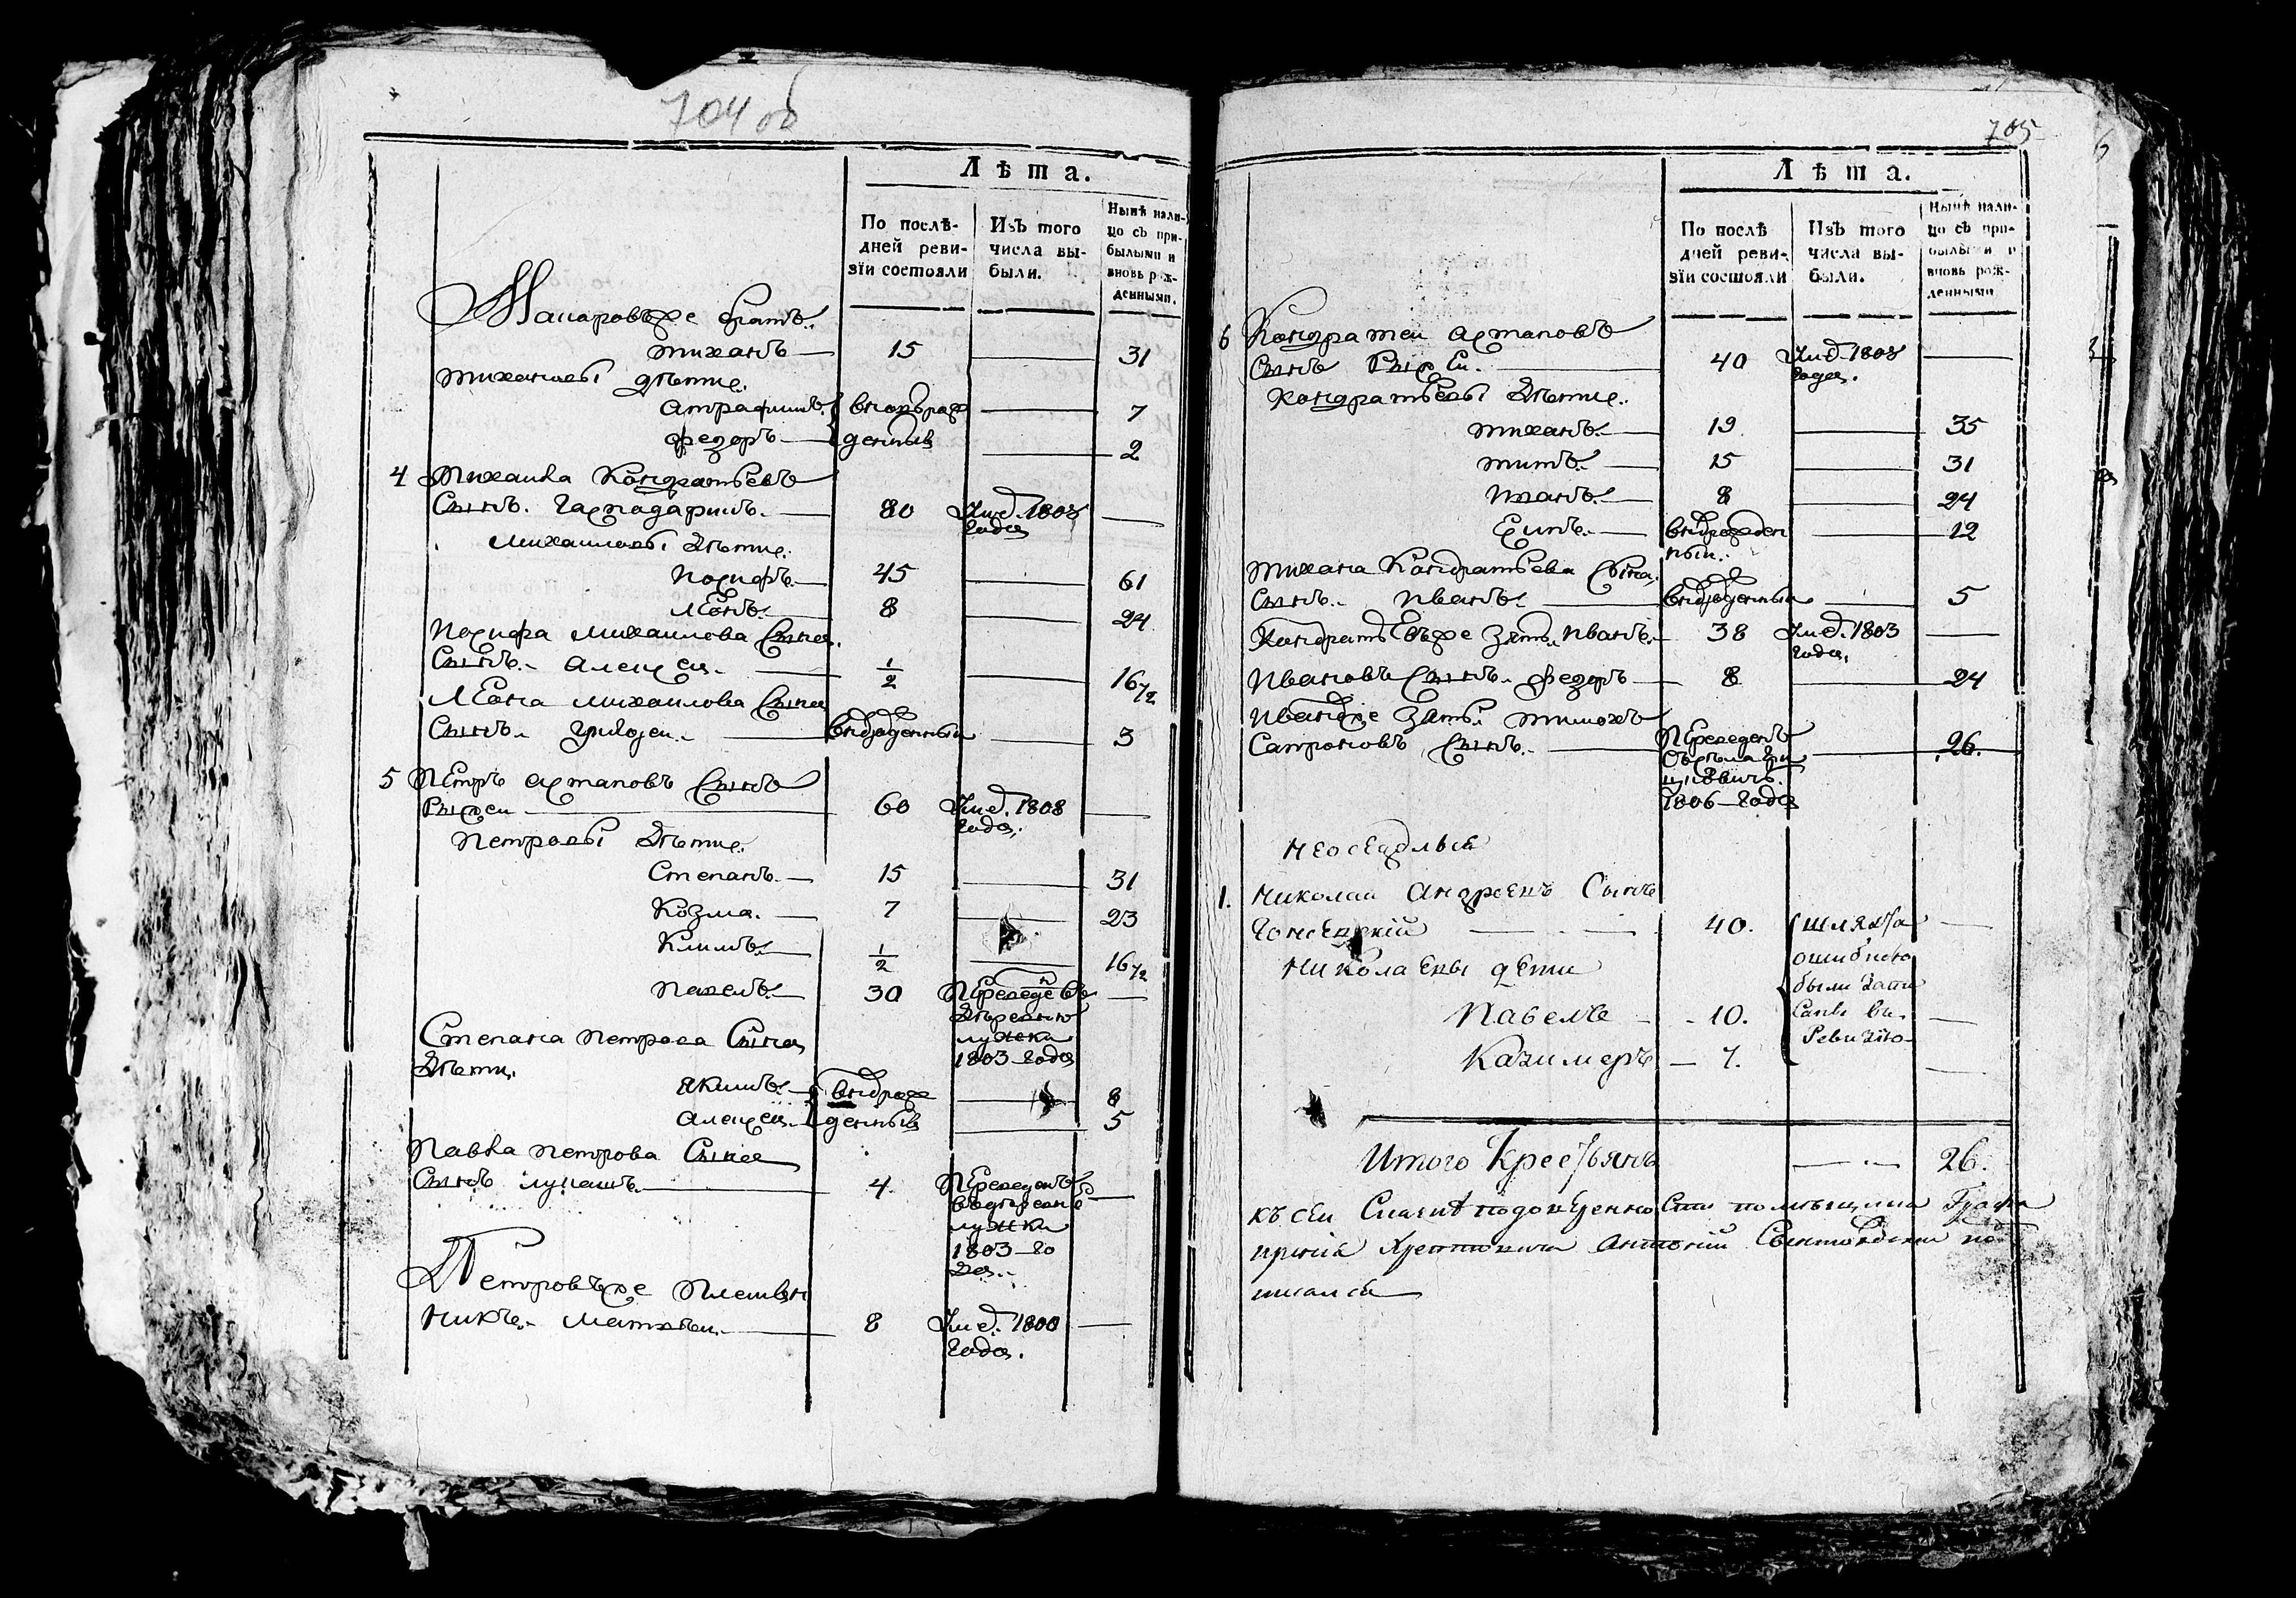 704 об
Лѣта.
По послѣ-
дней реви-
зіи состояли
Изъ того
числа вы-
были.
Нынѣ нали-
цо съ при-
былыми и
вновь рож-
денными.
Макаровъ же братъ.
Тиханъ — 15 — 31
Тихановы дѣти.
вновьрож — 7
Федоръ — денныя — 2
4 Михайла Кондратьевъ
Сынъ. — 80 Умер. 1808 —
года
Михайловы Дѣти.
Іосифъ — 45 — 61
Леонъ — 8 — 24
Іосифа Михайлова Сына
Сынъ. Алексей — 1/2 — 16 1/2
Леона Михайлова Сына
Сынъ. Григорей — вновьрожденный — 3
5 Петръ Астаповъ Сынъ
Рыжей — 60 Умер. 1808 —
года.
Петровы Дѣти.
Степанъ — 15 — 31
Козма. — 7 — 23
Климъ — 1/2 — 16 1/2
Павелъ — 30 Переведенъ въ —
Деревню
Степана Петрова Сына лужки
Дѣти. 1803 года
Якимъ — вновьрож — 8
Алексей — денныя — 5
Павла Петрова Сына
Сынъ Лукашъ — 4. Переведенъ —
въ деревню
лужки
1803 го
да.
Петровъ же Племян
никъ. Матвей — 8 Умер. 1800 —
года.
705
6
Лѣта.
По послѣ
дней реви-
зіи состояли
Изъ того
числа вы-
были.
Нынѣ нали-
цо съ при-
былыми и
вновь рож-
денными
6 Кондратей Астаповъ
Сынъ Рыжей. — 40 Умер. 1808 —
года.
Кондратьевы Дѣти.
Тиханъ — 19. — 35
Титъ — 15 — 31
Иванъ — 8 — 24
Есипъ — вновьрожден — 12
ный.
Тихана Кондратьева Сына
Сынъ. Иванъ — вновьрожденный — 5
Кондратьевъ же Зять Иванъ — 38 Умер. 1803 —
года.
Ивановъ Сынъ Федоръ — 8 — 24
Ивановъ же Зять Тимохъ
Сапроновъ Сынъ. — Переведенъ — 26.
1806 года
Неоседлые
1. Николай Андреевъ Сынъ
40. шляхта —
ошибкою
Николаевы дети были запи
Павелъ — 10. саны въ —
Ревизію
Казимеръ — 7. —
Итого Крестьянъ — 26.
къ сей Скаски по доверенности помѣщика Графа
Хрептовича Антоній под
писался